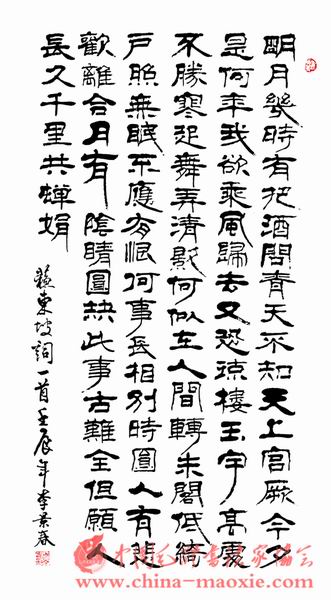 明月幾時有把酒問青天不知天上宮厥今夕
是何年我欲乘風歸去又恐琼樓玉宇高處
不勝寒起舞弄清影何似在人間轉朱閣低綺
戶照無眠不應有恨何事長相別時圓人有悲
歡離合月有陰晴圓缺此事古難全但願人
長久千里共蟬娟
蘇東坡詞一首壬辰年李景春
www.china-maoxie.com